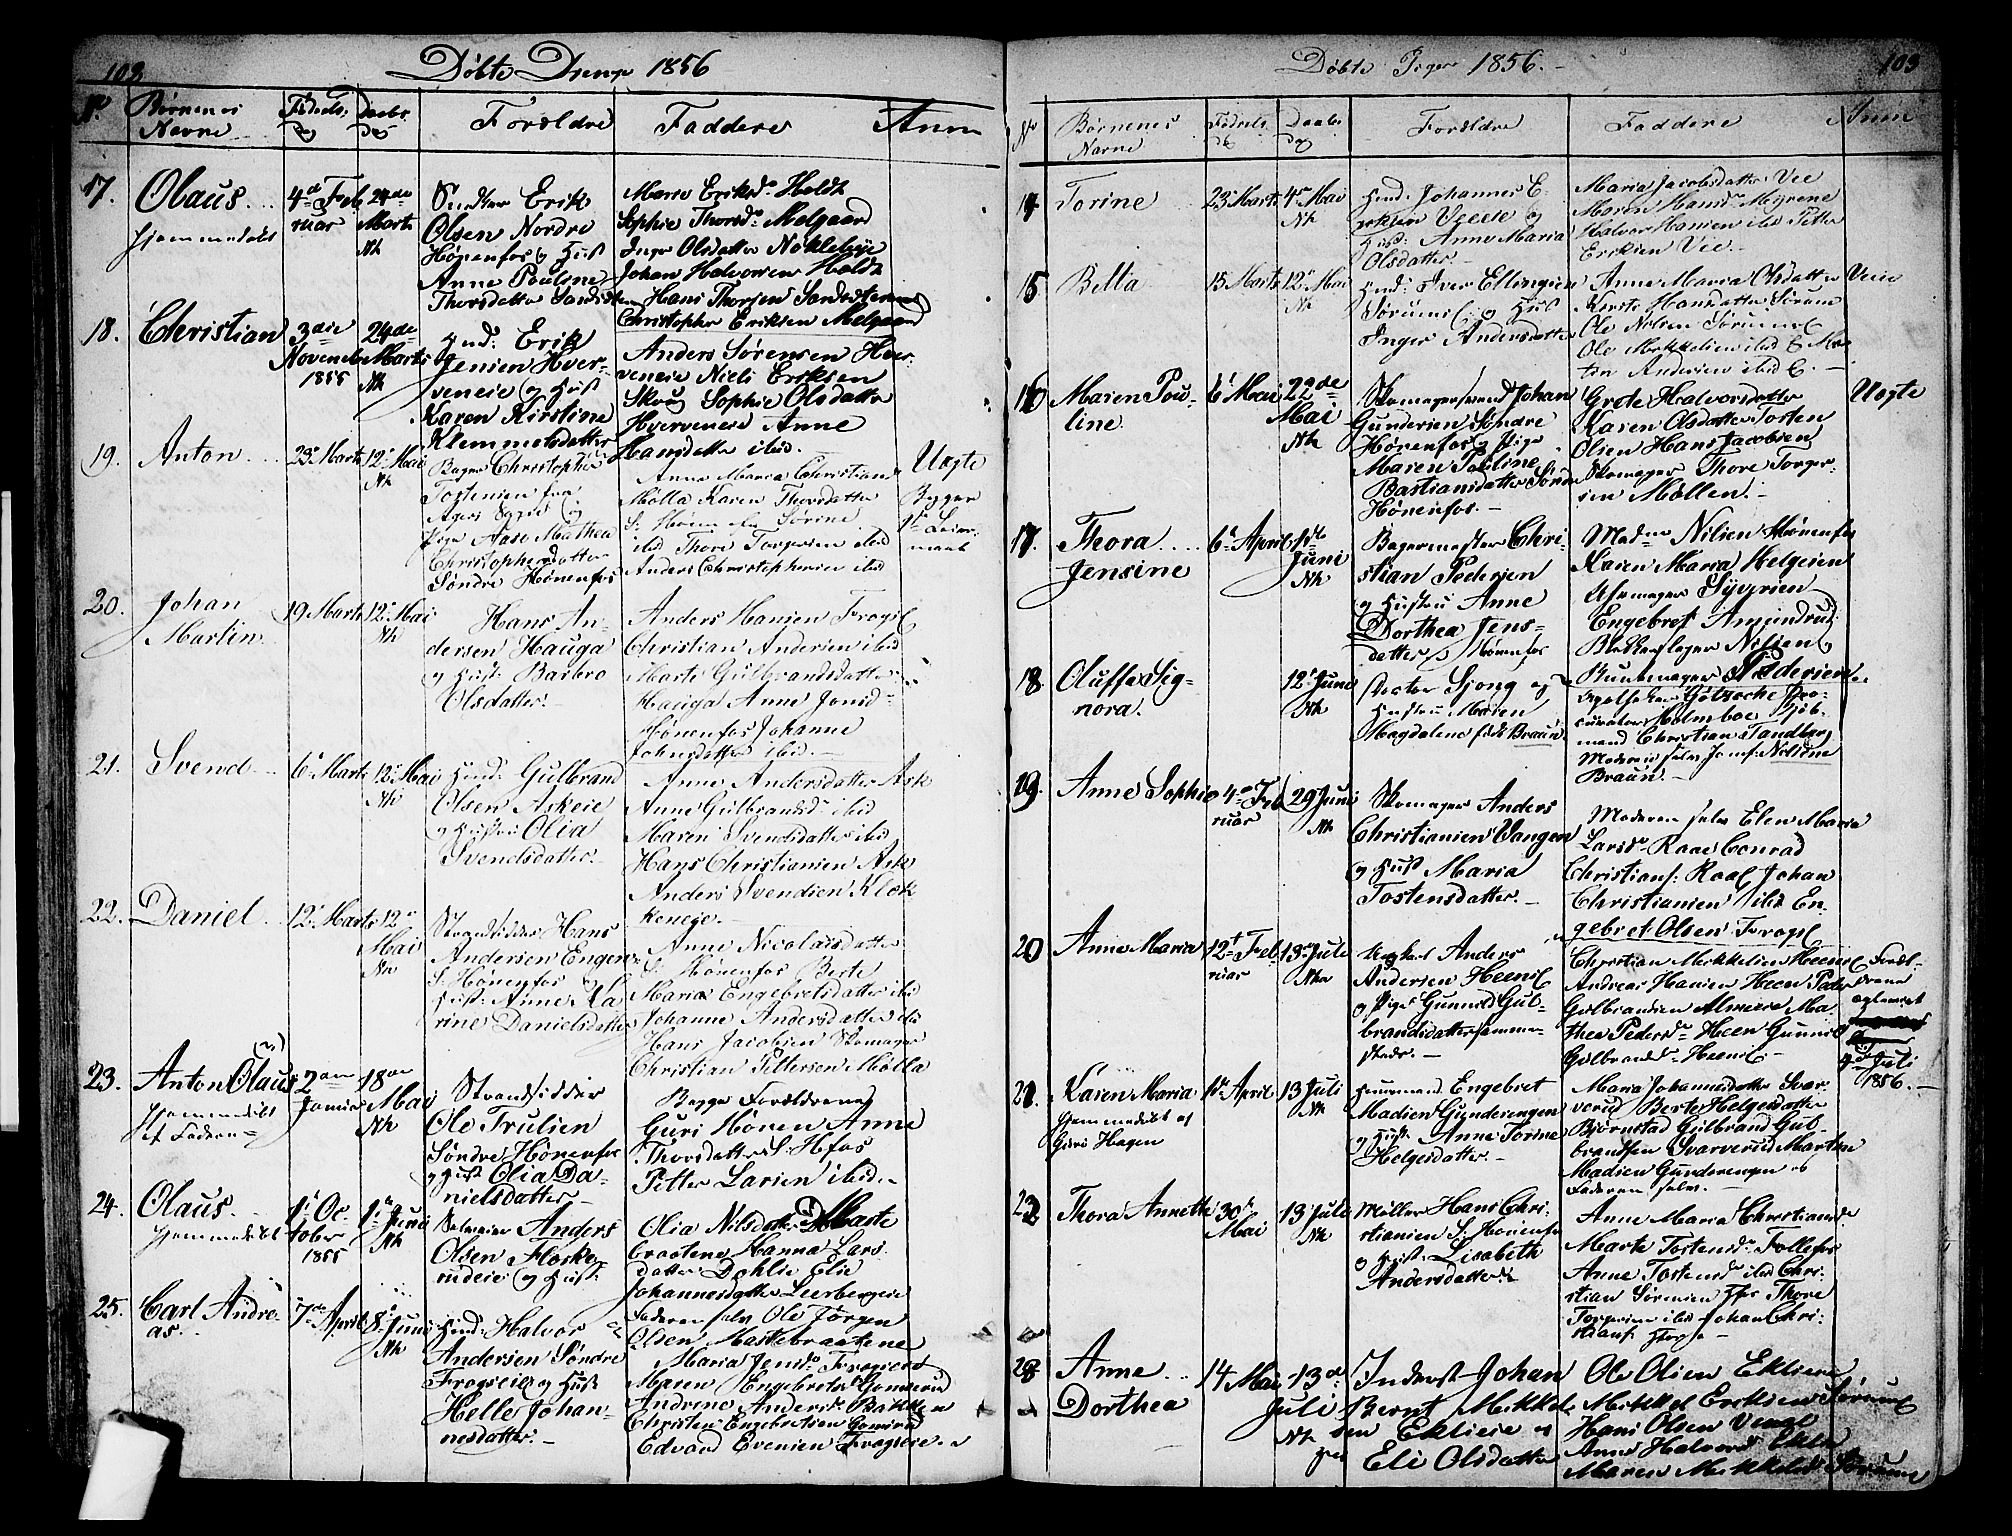 102
Døbte Drenge 1856
No
Børnenes Navne
Fødsels Dag
Daabs Dag
Forældre
Faddere
Anm
17.
Olaus
hjemmedøbt
4de Februar
24de Marts
Nk
Smeder Erik
Olsen Nordre
Hønenfos og Hust
Anne Pouline
Thorsdatter
Marie Eriksd. Holdt
Sophie Thorsd. Melgaard
Inger Olsdatter
Johan Halvorsen Holdt
Hans Thorsen
Christopher Eriksen Melgaard
18.
Christian
3die November 1855
24de Marts
Nk
Hmd: Erik
Jensen Hver-
veneie og Hust
Karen Kirstine
Klemmetsdatter
Anders Sørensen Hver-
veneie Niels Eriksen
Skoug Sophie Olsdatter
Hverveneie Anne
Hansdatter ibid.
19.
Anton
29 Marts
12 Mai
Nk
Bager Christopher
Tostensen fra
Agers Sogn og
Pige Aase Mathea
Christophersdatter
Søndre Hønenfos
Anne Maria Christians
Mølla Karen Thorsdatter
S: Hønenfos Sørine
ibid Thore Torgersen ibid
Anders Christophersen ibid
Uægte
Begges
1ste Leier-
maal
20.
Johan
Martin
19 Marts
12 Mai
Nk
Hans An-
dersen Hauga
og Hust: Barbro
Olsdatter.
Anders Hansen Frogs
Christian Andersen ibid
Marte Gulbrandsdatter
Hauga Anne Jonsd
Hønenfos Johanne
Johnsdatter ibid.
21.
Svend
6 Marts
12 Mai
Nk
Hmd: Gulbrand
Olsen Askeie
og Hustru Olia
Svendsdatter.
Anne Andersdatter Ask
Anne Gulbrandsd. ibid
Maren Svendsdatter ibid
Hans Christiansen Ask
Anders Svendsen Klæk-
keneje.
22.
Daniel
12 Marts
12 Mai
Nk
Strandsidder Hans
Andersen Engen
S: Hønenfos og
Hust: Anne Ka-
rine Danielsdatter
Anne Nicolaisdatter
S: Hønenfos Berte
Maria Engebretsdatter ibid
Johanne Andersdatter ibid
Hans Jacobsen Skomager
Christian Pettersen Mølla
23.
Anton Olaus
Hjemmedøbt
af Faderen
2den Januar
18de Mai
Nk
Strandsidder
Ole Trulsen
Søndre Hønenfos
og Hust Olia Da-
nielsdatter
Begge Forældrene
Guri Monen Anne
Thorsdatter S: Hfos
Petter Larsen ibid.
24.
Olaus
Hjemmedøbt
1. October 1855
1. Juni
Nk
Selveier Anders
Olsen Flaske-
rudeie og Hust:
Olia Nilsdatter Marte
braatene Hanna Lars
datter Dehlie Elie
Johannesdatter Leerbergeie
Faderen selv Ole Jørgen
Olsen Mastebraatene
25.
Carl Andre-
as.
7de April
8 Juni
Nk
Hmd: Halvor
Andersen Søndre
Frogseie og Hust
Helle Johan-
nesdatter.
Maria Jensd. Frogseie
Maren Engebretsd. Gomnerud
Andrine Andersd. Bakken
Christen Engebretsen Gomnerud
Edvard Evensen Frogseie.

103
Døbte Piger 1856.
No
Børnenes Navne
Fødsels Dag
Daabs Dag
Forældre
Faddere
Anm
14
Torine
23 Marts
4 Mai
Nk
Hmd: Johannes E-
riksen Veeeie og
Hust: Anne Maria
Olsdatter.
Maria Jacobsdatter Vee
Maren Hansd. Moeyrene
Halvor Hansen ibid Petter
Eriksen Vee.
15
Bella
15 Marts
12 Mai
Nk
Hmd: Iver Ellingsen
Sørum og Hust
Inger Andersdatter
Anne Maria Olsdatter Veeie
Kirsti Hansdatter Sørum
Ole Nilsen Sørum
Ole Mikkelsen ibid Mor-
ten Andersen ibid.
16
Maren Pou-
line
6 Mai
22de Mai
Nk
Skomagersvend Johan
Gundersen Søndre
Hønenfos og Pige
Maren Pouline
Bastiansdatter Søndre
Hønenfos.
Grete Halvorsdatter
Karen Olsdatter Tosten
Olsen Hans Jacobsen
Skomager Thore Torger-
sen Møllen.
Uægte
17.
Thora
Jensine
6 April
1ste Juni
Nk
Bagermester Chri-
stian Pedersen
og Hustru Anne
Dorthea Jens-
datter Hønenfos
Madme Nilsen Hønenfos
Karen Maria Helgesen
Uhrmager Syversen
Engebret Amundrud
Blikkenslager Nilsen
18
Oluffa Sig-
nora.
12 Juni
Nk
Doctor Sjong og
Hustru Maren
Magdalene født Braun.
Buntmager Pedersen
Gøtzsche Pro-
curator Holmboe Kjøb-
mand Christian Tandberg
Moderen selv Jomf. Nilsine
Braun.
19.
Anne Sophie
4de Februar
29 Juni
Nk
Skomager Anders
Christiansen Vangen
og Hust Maria
Tostensdatter.
Moderen selv Elen Maria
Larsd. Raae Conrad
Christians: Raae Johan
Christiansen ibid En-
gebret Olsen Frogs
20
Anne Maria
12te Februar
13 Juli
Nk
Ungkarl Anders
Andersen Heen
og Pige Gunnild Gul-
brandsdatter samme-
steds.
Christian Mikkelsen Heen
Andreas Hansen Heen Peder
Gulbrandsen Almeie Ma-
thea Pedersd. Heen Gunnild
Gulbrandsd. Heen
Foræl-
drene
ægteviet
4de Juli
1856.
21.
Karen Maria
Hjemmedøbt af
Guri Hagen
1ste April
13 Juli
Nk
Huusmand Engebret
Madsen Gunderengen
og Hust. Anne Torine
Helgesdatter.
Maria Johannesdatter Svar-
verud Berte Helgesdatter
Bjørnstad Gulbrand Gul-
brandsen Svarverud Martin
Madsen Gunderengen og
Faderen selv.
22
Thora Annette
30 Mai
13 Juli
Nk
Møller Hans Chri-
stiansen S. Hønenfos
og Hust: Lisabeth
Andersdatter.
Anne Maria Christiansd.
Marte Tostensd. Follefos
Anne Tostensd. ibid Chri-
stian Sørensen Hfos Thore
Torgersen ibid Johan Chri-
stians: Hfos
23
Anne
Dorthea
14 Mai
13 Juli
Nk
Inderst Johan
Bernt Mikkel-
sen Eklieie og
Eli Olsdatter
Ole Olsen Eklieie
Mikkel Eriksen Sørum
Hans Olsen
Anne Halvorsd. Eklie
Maren Mikkelsd. Sørum